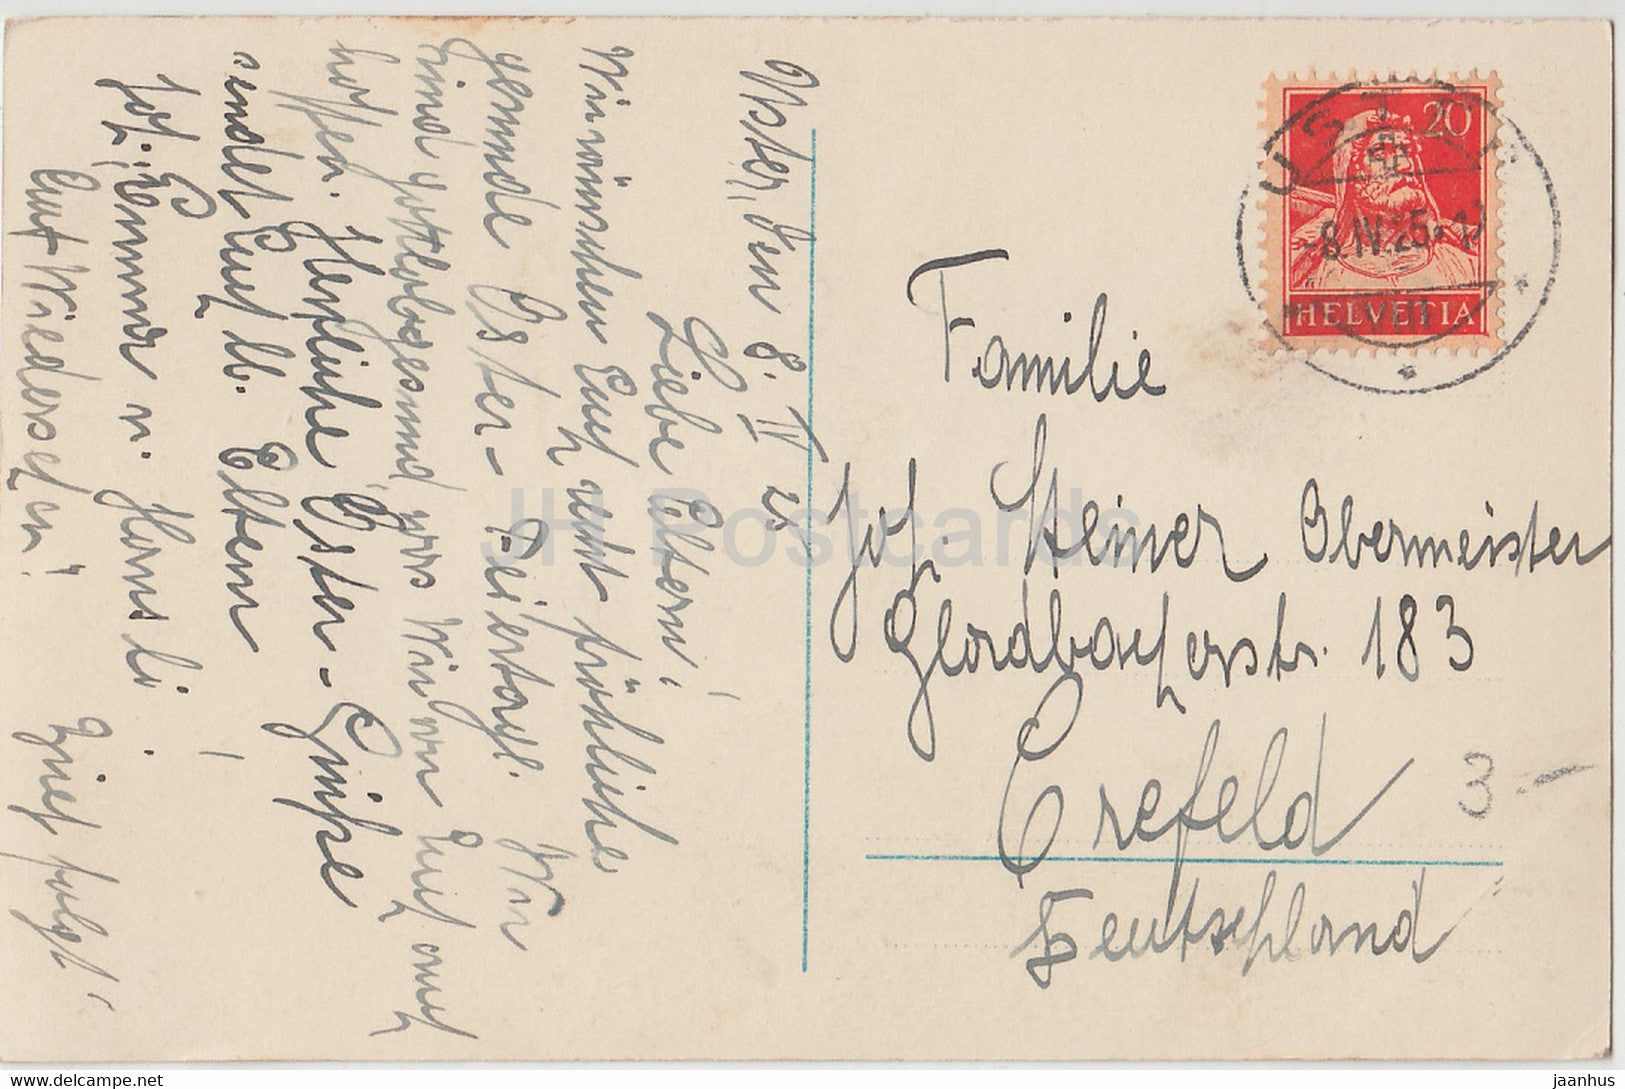 Uster, den 8. IV 25
Liebe Eltern!
Wir wünschen Euch recht fröhliche
gesunde Oster-Feiertage. Wir
sind gottlob gesund, was Wir von Euch auch
hoffen. Herzliche Oster-Grüße
sendet Euch lb. Eltern
Jos. Emma u. Hansli.
Auf Wiedersehen! Brief folgt.
Familie
Jos. Steiner Obermeister
Gladbacherstr. 183
Crefeld
Deutschland
3.-
20
HELVETIA
USTER
-8.IV.25.
JH Postcards
www.delcampe.net
jaanhus